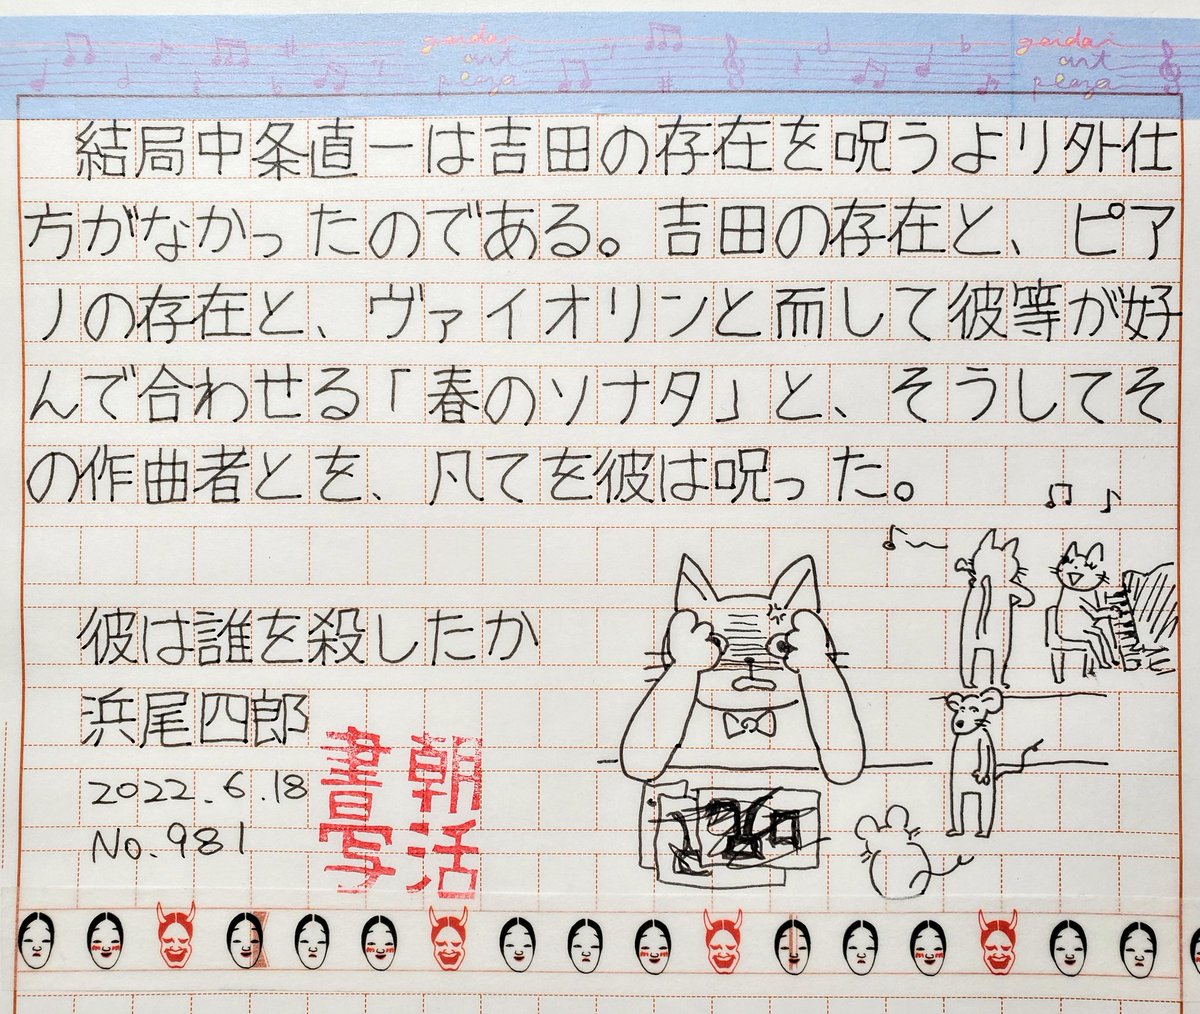 geidai art plaza geidai art plaza
結局中条直一は吉田の存在を呪うより外仕
方がなかったのである。吉田の存在と、ピア
ノの存在と、ヴァイオリンと而して彼等が好
んで合わせる「春のソナタ」と、そうしてそ
の作曲者とを、凡てを彼は呪った。
彼は誰を殺したか
浜尾四郎
2022.6.18
No.981
朝活書写